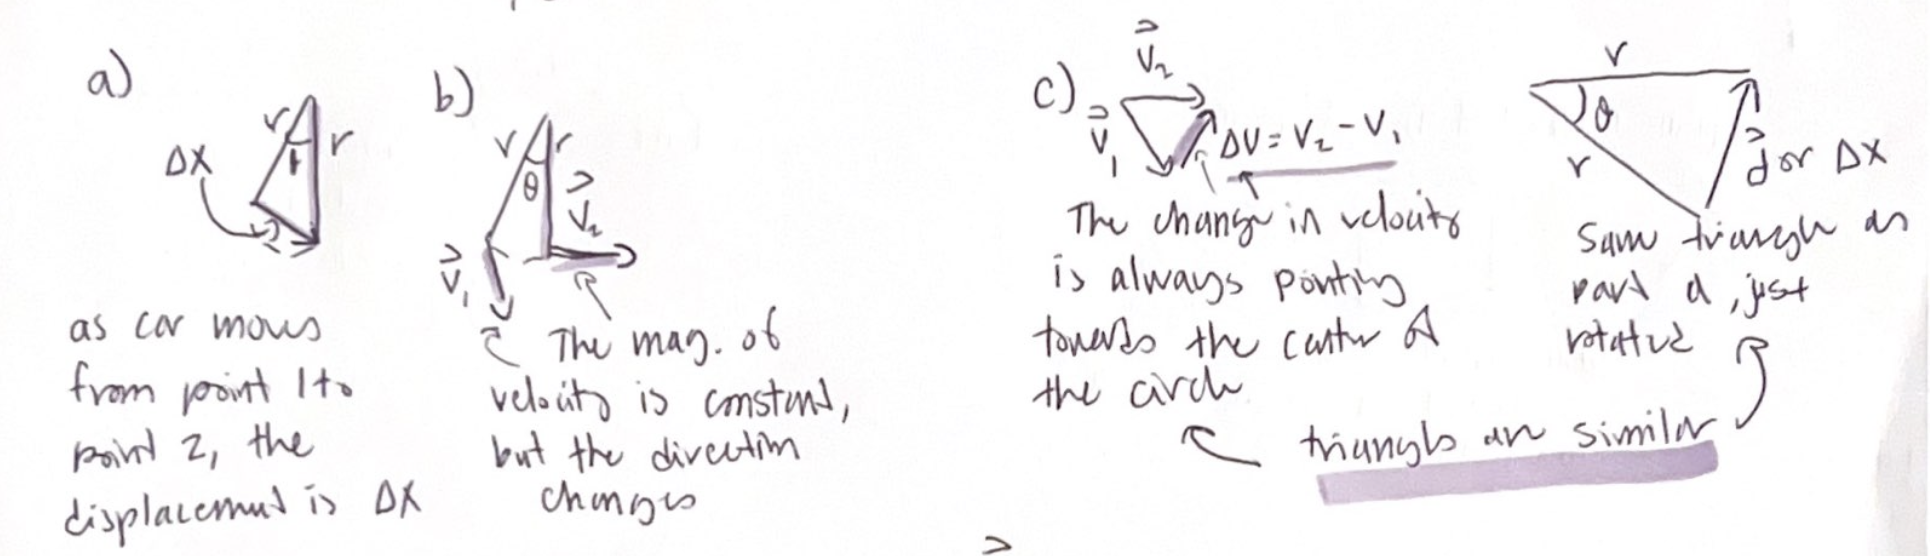 a)
r
r
ΔX
as car moves
from point 1 to
point 2, the
displacement is ΔX
b)
r r
θ
V₂
V₁
The mag. of
velocity is constant,
but the direction
changes
c)
V₂
V₁
ΔV = V₂ - V₁
The change in velocity
is always pointing
towards the center of
the circle
r
θ
r
d or ΔX
Same triangle as
part a, just
rotated
triangles are similar